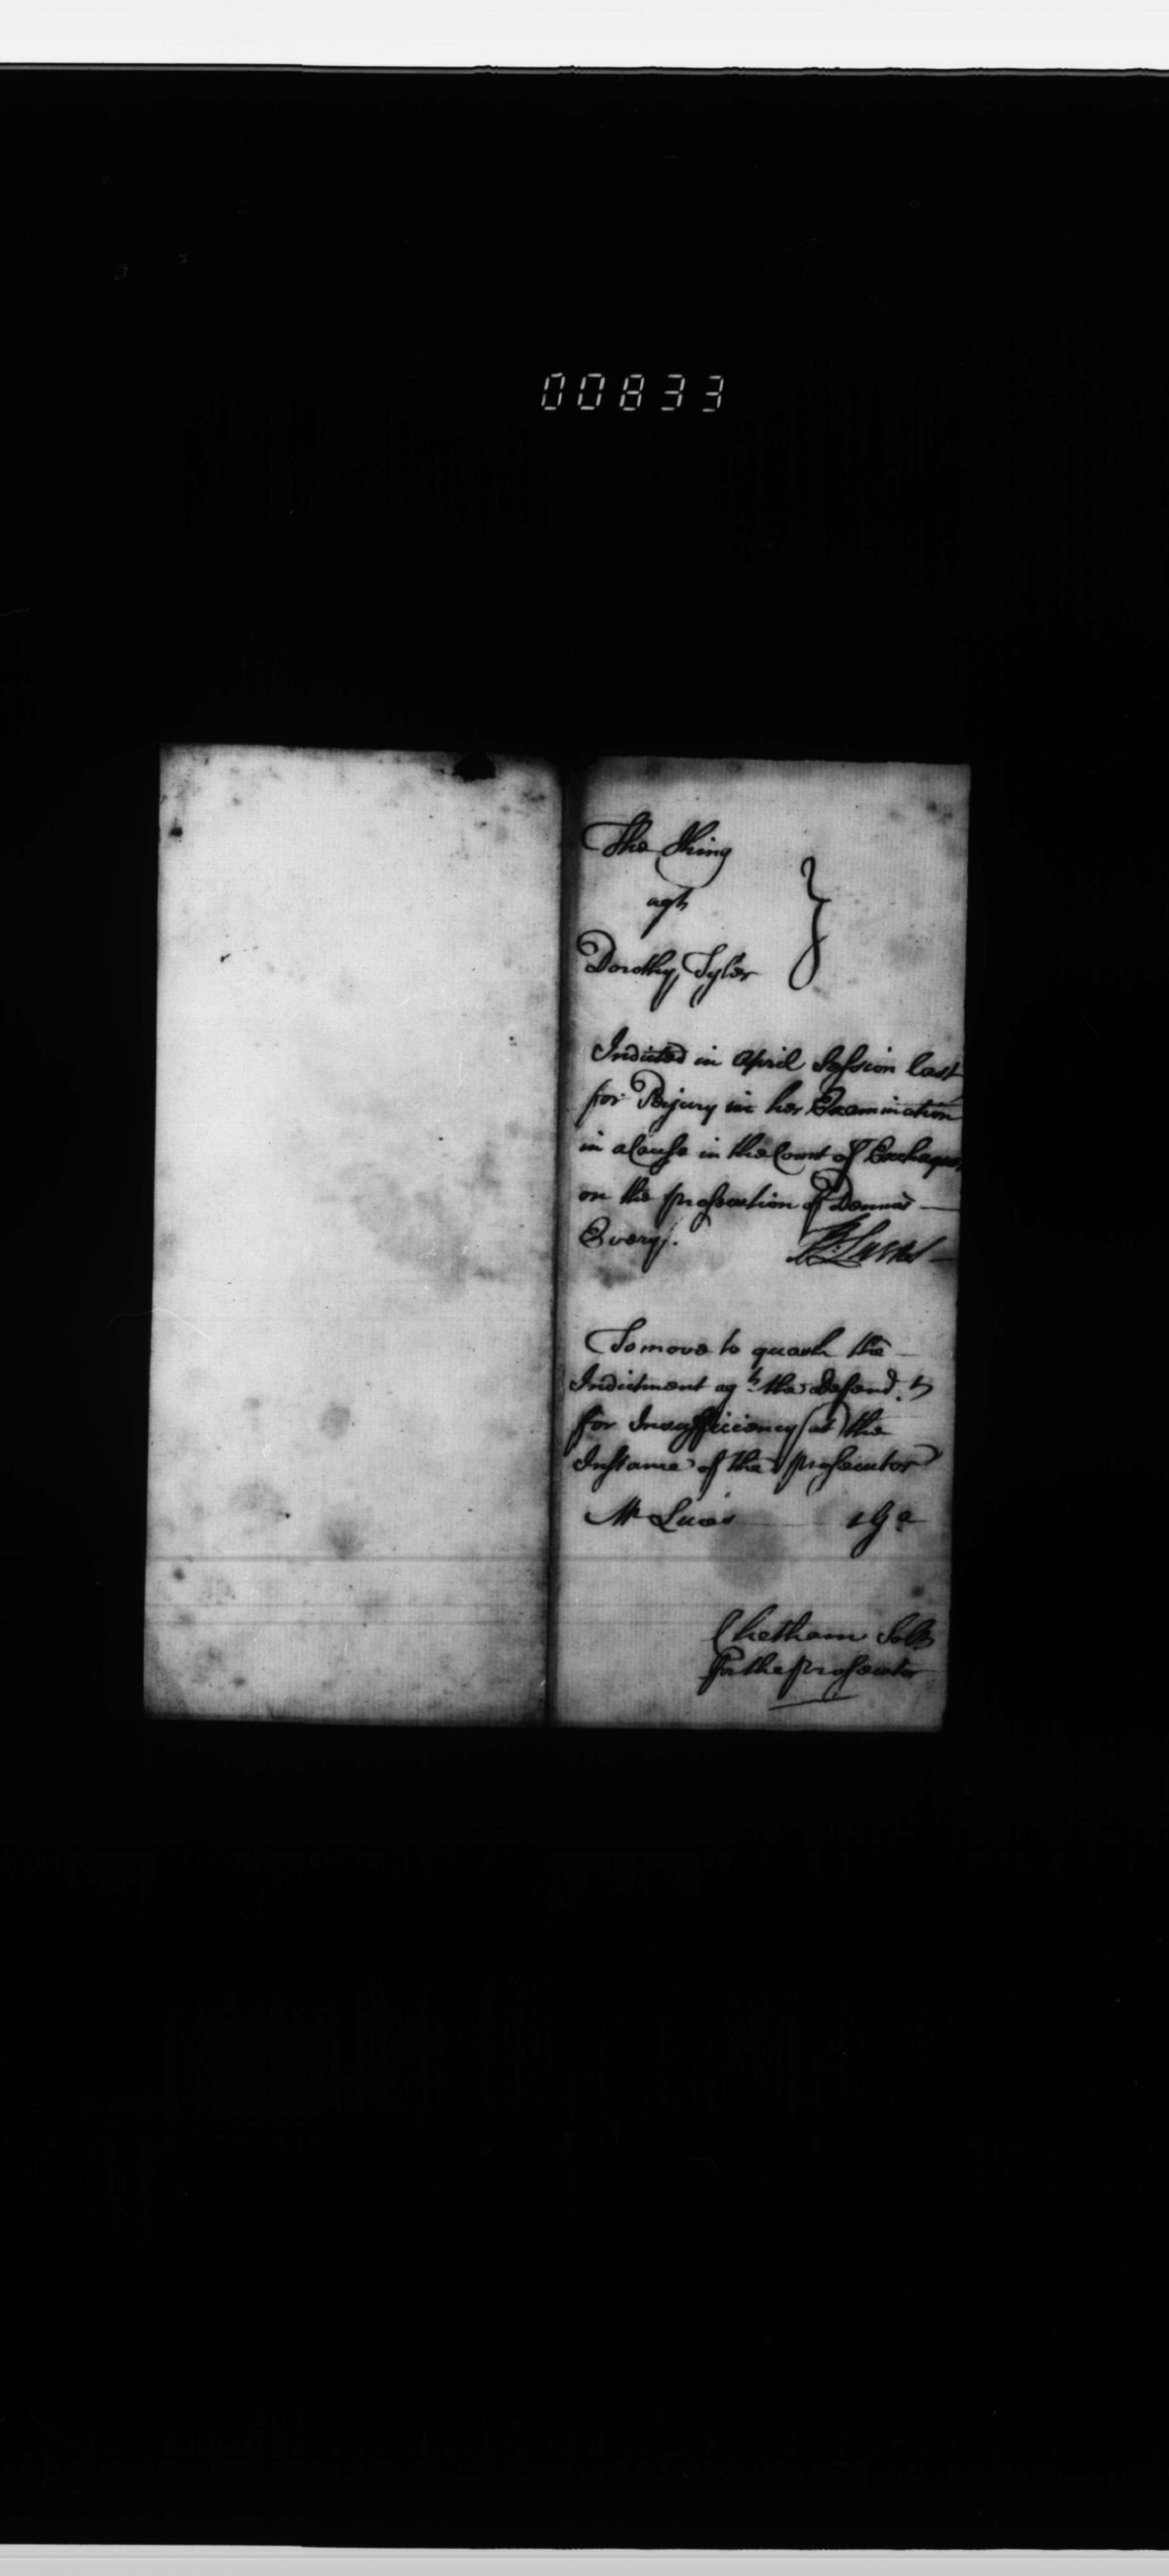 00833
The King
agt
Dorothy Tyler
Indicted in April Session last
for Perjury in her Examination
in a Cause in the Court of Exchequer
on the prosecution of Dennis
Every.
To move to quash the
Indictment agt. the Defend.t
for Insufficiency (at) the
Instance of the prosecutor
Mr Lucas 1 Ga
Chetham Sollr
for the prosecutor